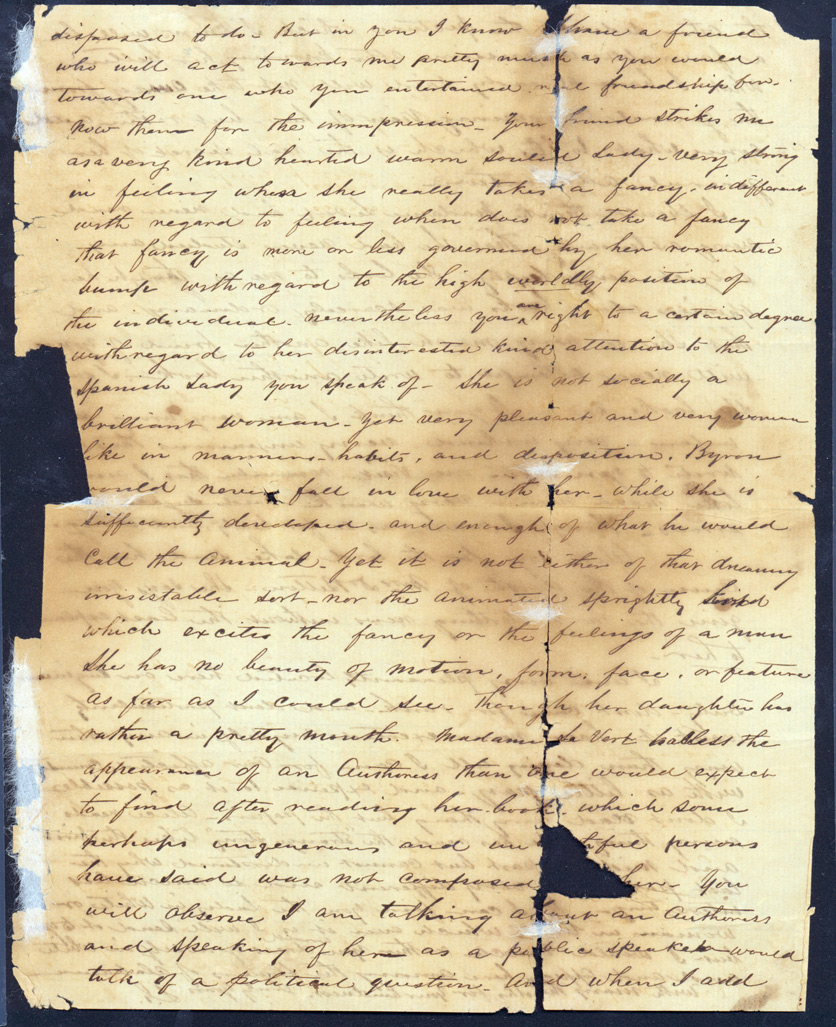 disposed to do - But in you I know I have a friend
who will act towards me pretty much as you would
towards one who you entertained real friendship for.
now then for the impression - Your friend strikes me
as a very kind hearted warm souled Lady - very strong
in feeling when she really takes a fancy - indifferent
with regard to feeling when does not take a fancy
that fancy is more or less governed by her romantic
bump with regard to the high worldly position of
the individual. nevertheless you are right to a certain degree
with regard to her disinterested kind attention to the
Spanish Lady you speak of - She is not socially a
brilliant woman - yet very pleasant and very woman
like in manners - habits, and disposition. Byron
would never fall in love with her - while she is
sufficiently developed - and enough of what he would
call the animal - Yet it is not either of that dreamy
irrisistable sort - nor the animated sprightly kind
which excites the fancy or the feelings of a man
She has no beauty of motion, form, face, or feature
as far as I could see - though her daughter has
rather a pretty mouth. Madame Le Vert has less the
appearance of an Authoress than one would expect
to find after reading her book - which some
perhaps ungenerous and persons
have said was not composed her - You
will observe I am talking about an Authoress
and speaking of her as a public speaker would
talk of a political question - And when I add